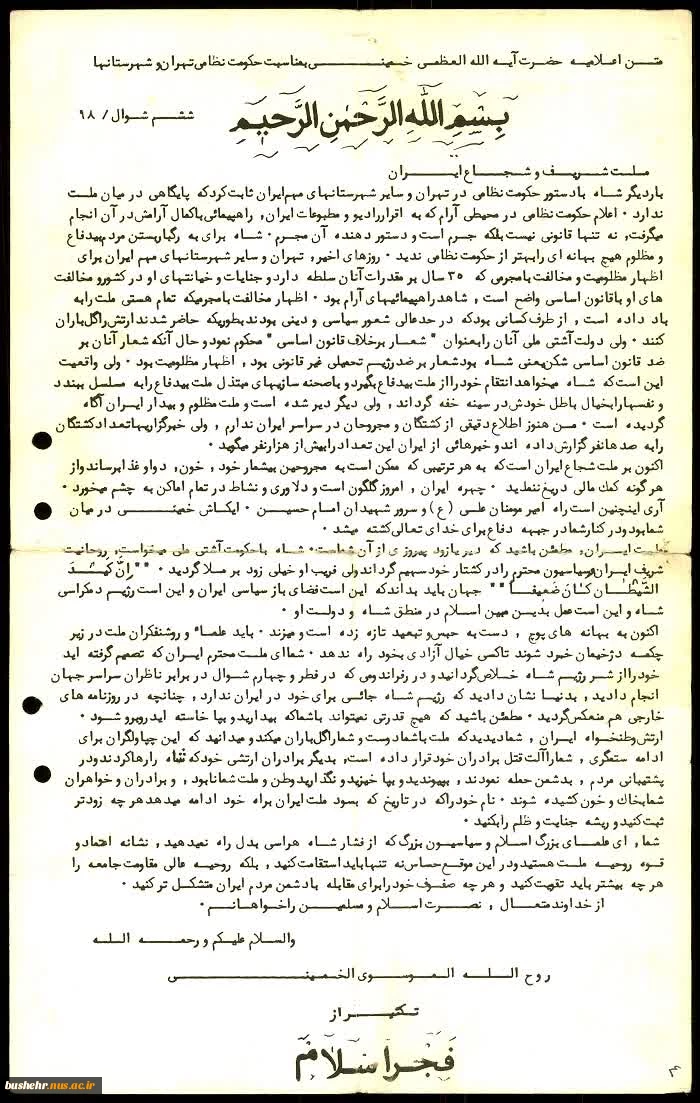 متن اعلامیه حضرت آیه الله العظمی خمینی بمناسبت حکومت نظامی تهران و شهرستانها
ششم شوال / ۹۸
بسم الله الرحمن الرحیم
ملت شریف و شجاع ایران
باردیگر شاه با دستور حکومت نظامی در تهران و سایر شهرستانهای مهم ایران ثابت کرد که پایگاهی در میان ملت
ندارد ۰ اعلام حکومت نظامی در محیطی آرام که به اقرار رادیو و مطبوعات ایران, راهپیمائی با کمال آرامش در آن انجام
میگرفت, نه تنها قانونی نیست بلکه جرم است و دستور دهنده آن مجرم ۰ شاه برای به رگبار بستن مردم بیدفاع
و مظلوم هیچ بهانه ای را بهتر از حکومت نظامی ندید ۰ روزهای اخیر, تهران و سایر شهرستانهای مهم ایران برای
اظهار مظلومیت و مخالفت با مجرمی که ۳۵ سال بر مقدرات آنان سلطه دارد و جنایات و خیانتهای او در کشور و مخالفت
های او با قانون اساسی واضح است, شاهد راهپیمائیهای آرام بود ۰ اظهار مخالفت با مجرمیکه تمام هستی ملت را به
باد داده است, از طرف کسانی بود که در حد عالی شعور سیاسی و دینی بودند بطوریکه حاضر شدند ارتش را گل باران
کنند ۰ ولی دولت آشتی ملی آنان را بعنوان " شعار برخلاف قانون اساسی " محکوم نمود و حال آنکه شعار آنان بر
ضد قانون اساسی شکن یعنی شاه بود شعار بر ضد رژیم تحمیلی غیر قانونی بود, اظهار مظلومیت بود ۰ ولی واقعیت
این است که شاه میخواهد انتقام خود را از ملت بیدفاع بگیرد و با صحنه سازیهای مبتذل ملت بیدفاع را به مسلسل ببندد
و نفسها را بخیال باطل خودش در سینه خفه گرداند, ولی دیگر دیر شده است و ملت مظلوم و بیدار ایران آگاه
گردیده است ۰ من هنوز اطلاع دقیقی از کشتگان و مجروحان در سراسر ایران ندارم, ولی خبرگزاریها تعداد کشتگان
را به صدها نفر گزارش داده اند و خبرهائی از ایران این تعداد را بیش از هزار نفر میگوید ۰
اکنون بر ملت شجاع ایران است که به هر ترتیبی که ممکن است به مجروحین بیشمار خود, خون, دوا و غذا برساند و از
هر گونه کمک مالی دریغ ننماید ۰ چهره ایران, امروز گلگون است و دلاوری و نشاط در تمام اماکن به چشم میخورد ۰
آری اینچنین است راه امیر مومنان علی (ع) و سرور شهیدان امام حسین ۰ ایکاش خمینی در میان
شما بود و در کنار شما در جبهه دفاع برای خدای تعالی کشته میشد ۰
ملت ایران, مطمئن باشید که دیر یا زود پیروزی از آن شماست ۰ شاه با حکومت آشتی ملی میخواست, روحانیت
شریف ایران و سیاسیون محترم را در کشتار خود سهیم گرداند ولی فریب او خیلی زود بر ملا گردید ۰ " ان کید
الشیطان کان ضعیفا " جهان باید بداند که این است فضای باز سیاسی ایران و این است رژیم دمکراسی
شاه و این است عمل بدین مبین اسلام در منطق شاه و دولت او ۰
اکنون به بهانه های پوچ, دست به حبس و تبعید تازه زده است و میزند ۰ باید علماء و روشنفکران ملت در زیر
چکمه دژخیمان خرد شوند تا کسی خیال آزادی بخود راه ندهد ۰ شما ای ملت محترم ایران که تصمیم گرفته اید
خود را از شر رژیم شاه خلاص گردانید و در رفراندومی که در فطر و چهارم شوال در برابر ناظران سراسر جهان
انجام دادید, بدنیا نشان دادید که رژیم شاه جائی برای خود در ایران ندارد, چنانچه در روزنامه های
خارجی هم منعکس گردید ۰ مطمئن باشید که هیچ قدرتی نمیتواند با شما که بیدارید و بپا خاسته اید روبرو شود ۰
ارتش وطنخواه ایران, شما دیدید که ملت با شما دوست و شما را گل باران میکند و میدانید که این چپاولگران برای
ادامه ستمگری, شما را آلت قتل برادران خود قرار داده است, بدیگر برادران ارتشی خود که شاه را رها کردند و در
پشتیبانی مردم, بدشمن حمله نمودند, بپیوندید و بپا خیزید و نگذارید وطن و ملت شما نابود, و برادران و خواهران
شما بخاک و خون کشیده شوند ۰ نام خود را که در تاریخ که بسود ملت ایران براه خود ادامه میدهد هر چه زودتر
ثبت کنید و ریشه جنایت و ظلم را بکنید ۰
شما, ای علمای بزرگ اسلام و سیاسیون بزرگ که از فشار شاه هراسی بدل راه نمیدهید, نشانه اعتماد و
قوه روحیه ملت هستید و در این موقع حساس نه تنها باید استقامت کنید, بلکه روحیه عالی مقاومت جامعه را
هر چه بیشتر باید تقویت کنید و هر چه صفوف خود را برای مقابله با دشمن مردم ایران متشکل تر کنید ۰
از خداوند متعال, نصرت اسلام و مسلمین را خواهانم ۰
والسلام علیکم و رحمه الله
روح الله الموسوی الخمینی
تکثیر از
فجر اسلام
۳
bushehr.nus.ac.ir